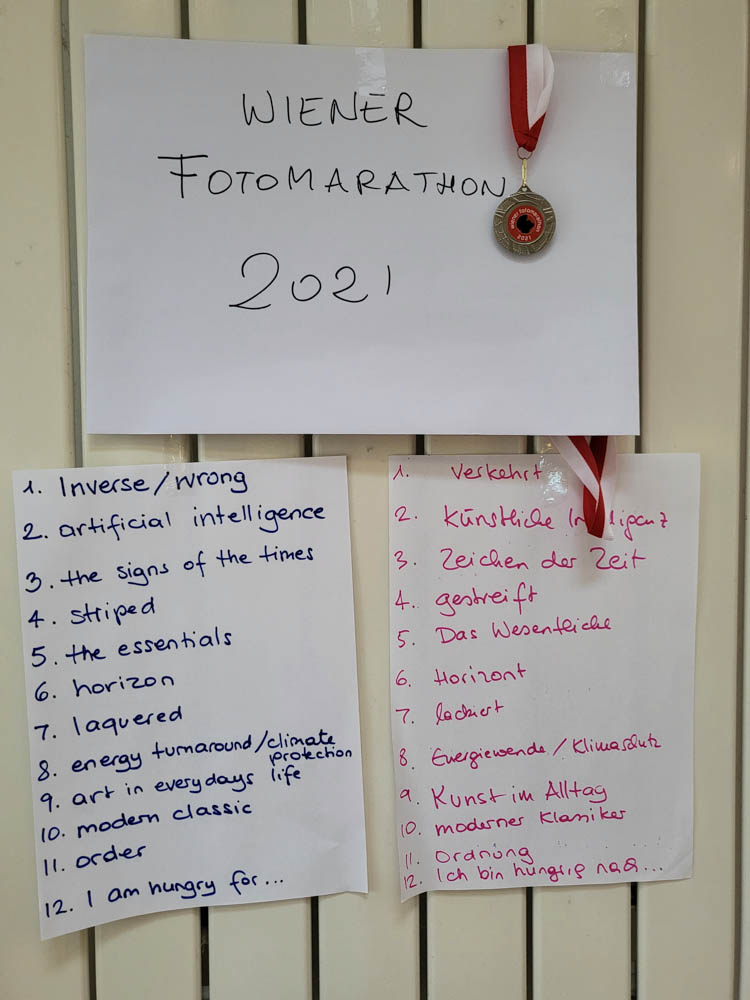 WIENER
FOTOMARATHON
2021
wiener fotomarathon
2021
1. Inverse/wrong
2. artificial intelligence
3. the signs of the times
4. striped
5. the essentials
6. horizon
7. laquered
8. energy turnaround/climate
protection
9. art in everydays life
10. modern classic
11. order
12. I am hungry for...
1. Verkehrt
2. Künstliche In lligenz
3. Zeichen der Zeit
4. gestreift
5. Das Wesentliche
6. Horizont
7. lackiert
8. Energiewende/Klimaschutz
9. Kunst im Alltag
10. moderner Klassiker
11. Ordnung
12. Ich bin hungrig nach...